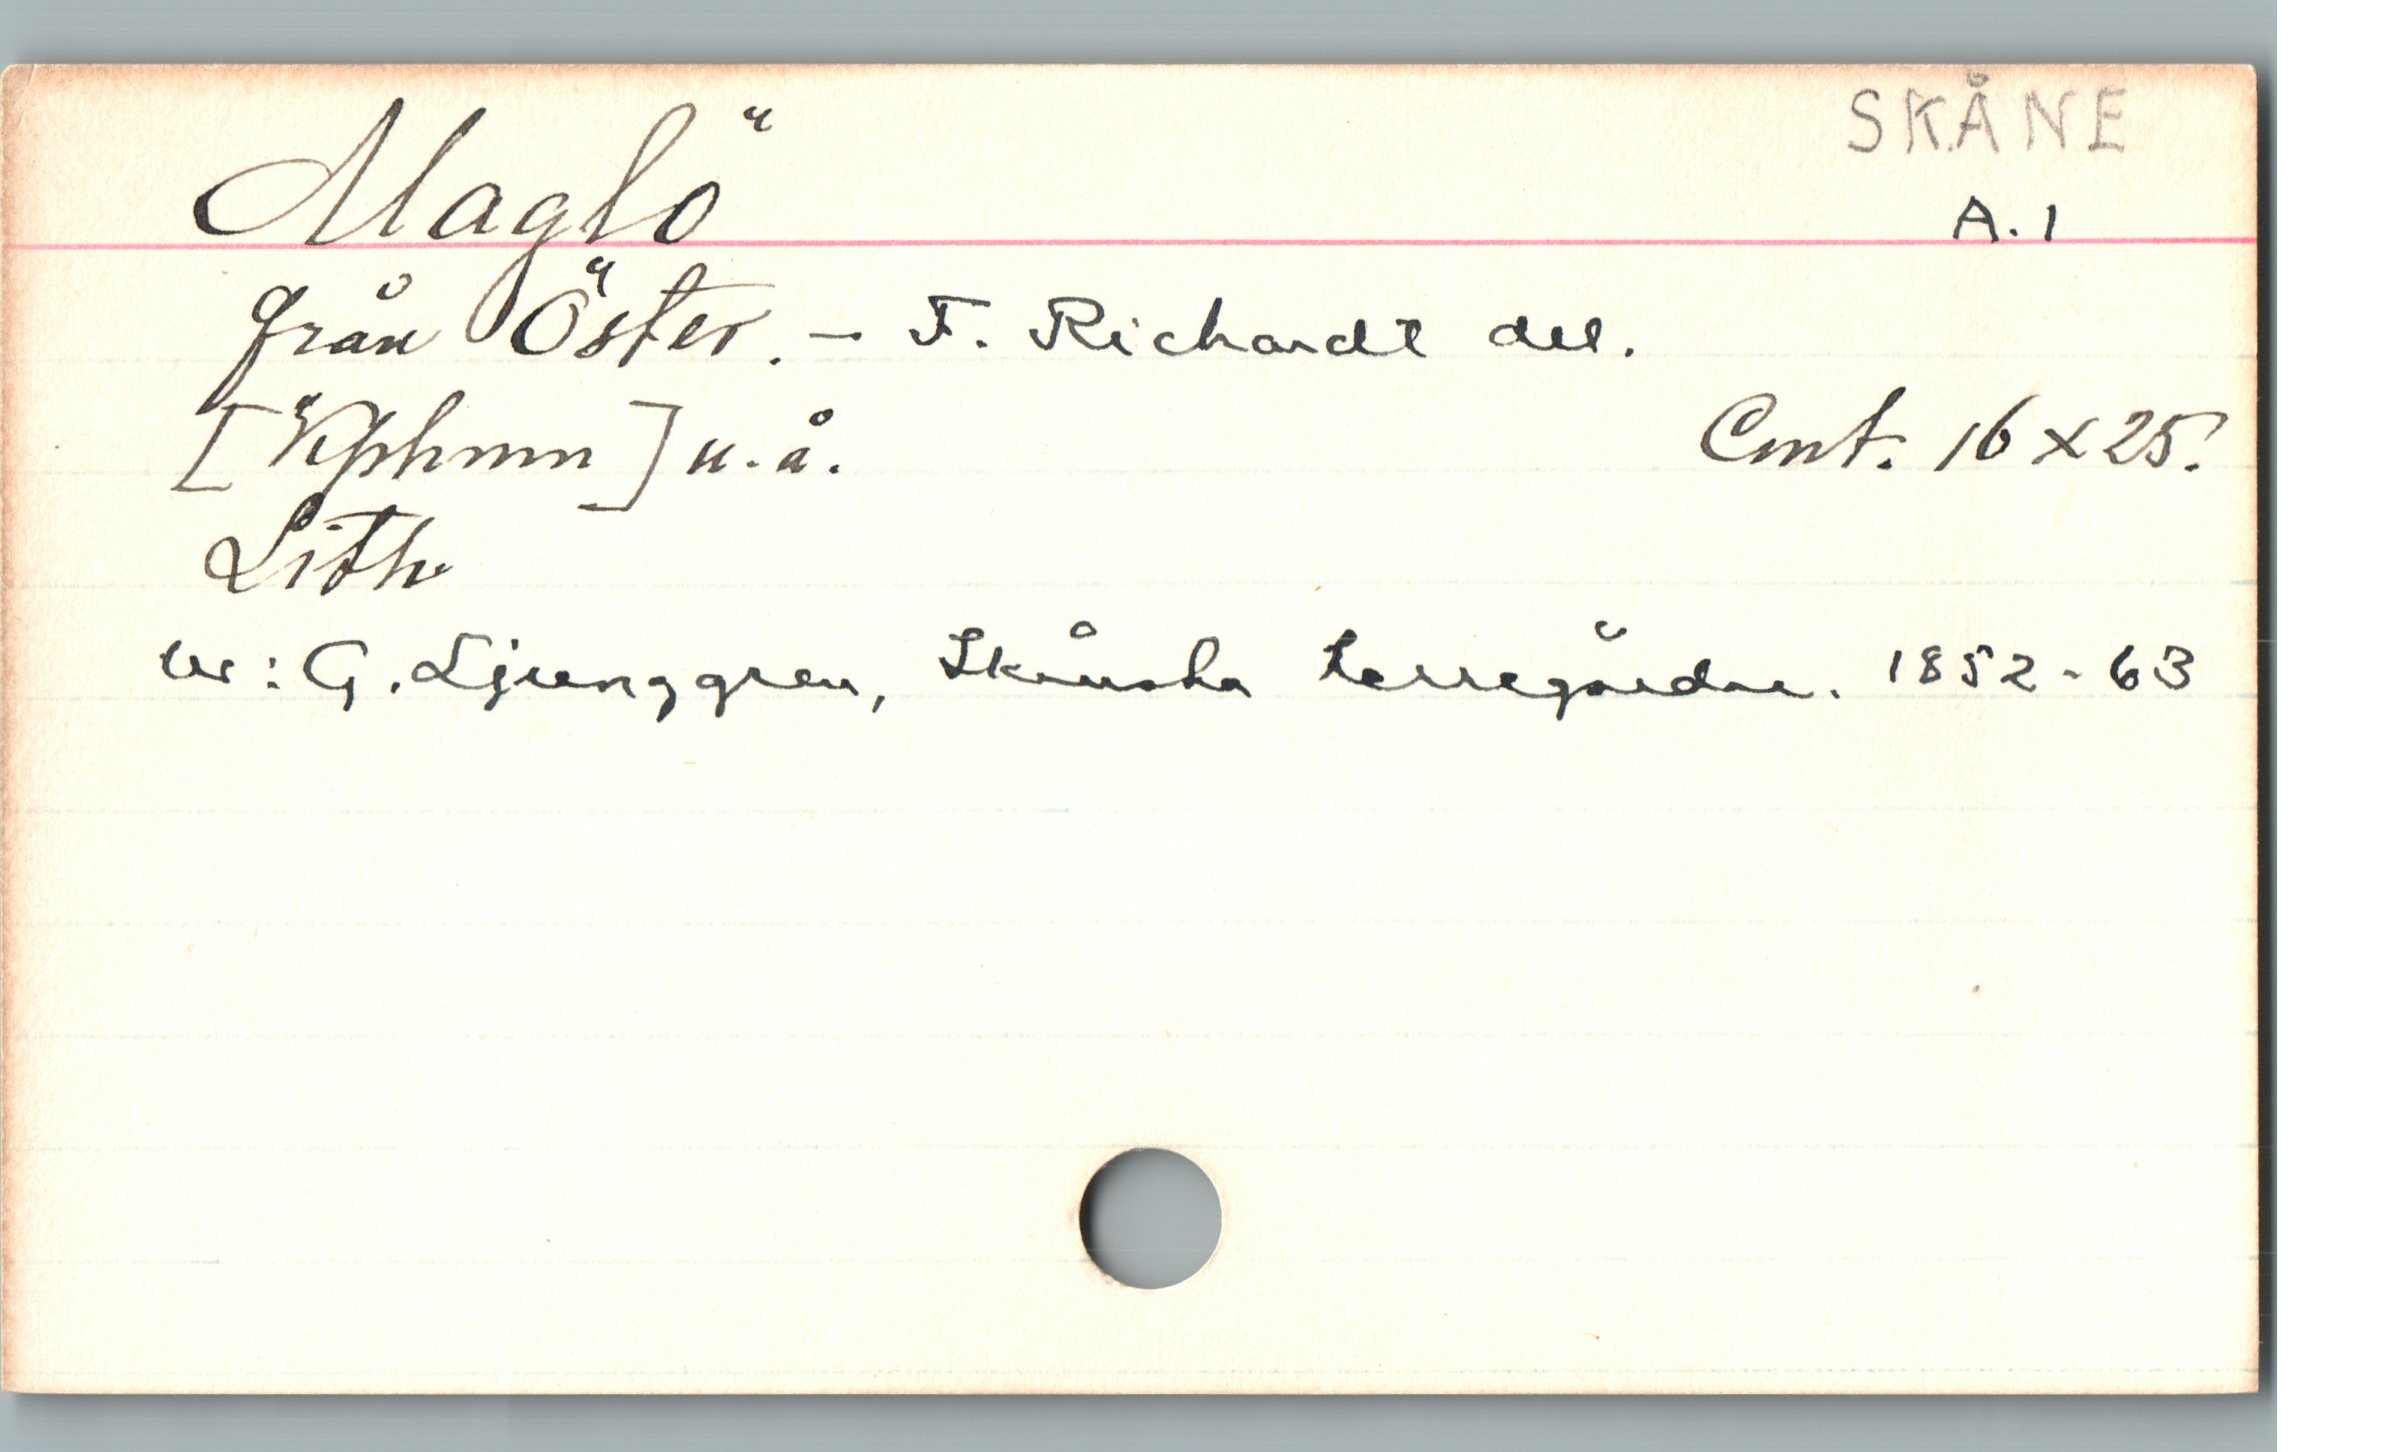 SKÅNE
Maglö
A. 1
från Öster. – F. Richardt del.
[Kphmn] u. å. Cmt. 16 x 25.
Lith
Ur: G. Ljunggren, Skånska herregårdar. 1852-63